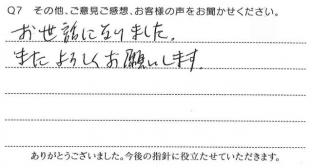 Q7 その他、ご意見ご感想、お客様の声をお聞かせください。
お世話になりました。
またよろしくお願いします。
ありがとうございました。今後の指針に役立たせていただきます。